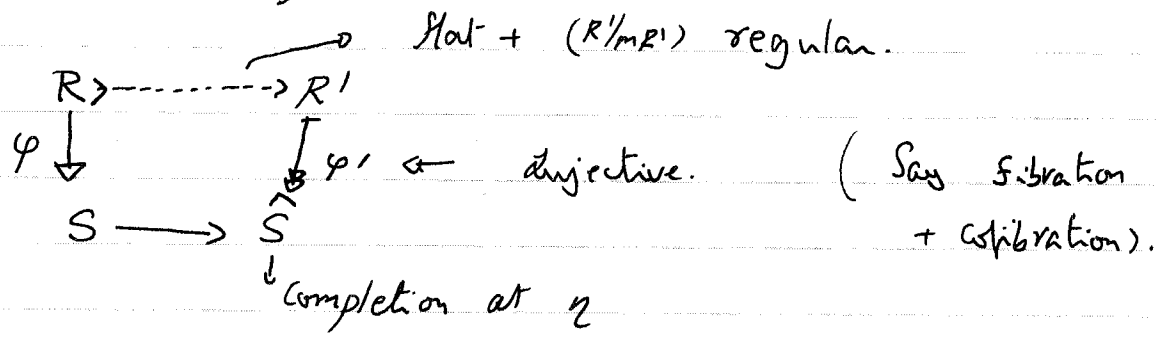 flat + (R'/mR') regular.
R R'
φ φ' ← surjective. ( Say fibration
S Ŝ + cofibration).
completion at η